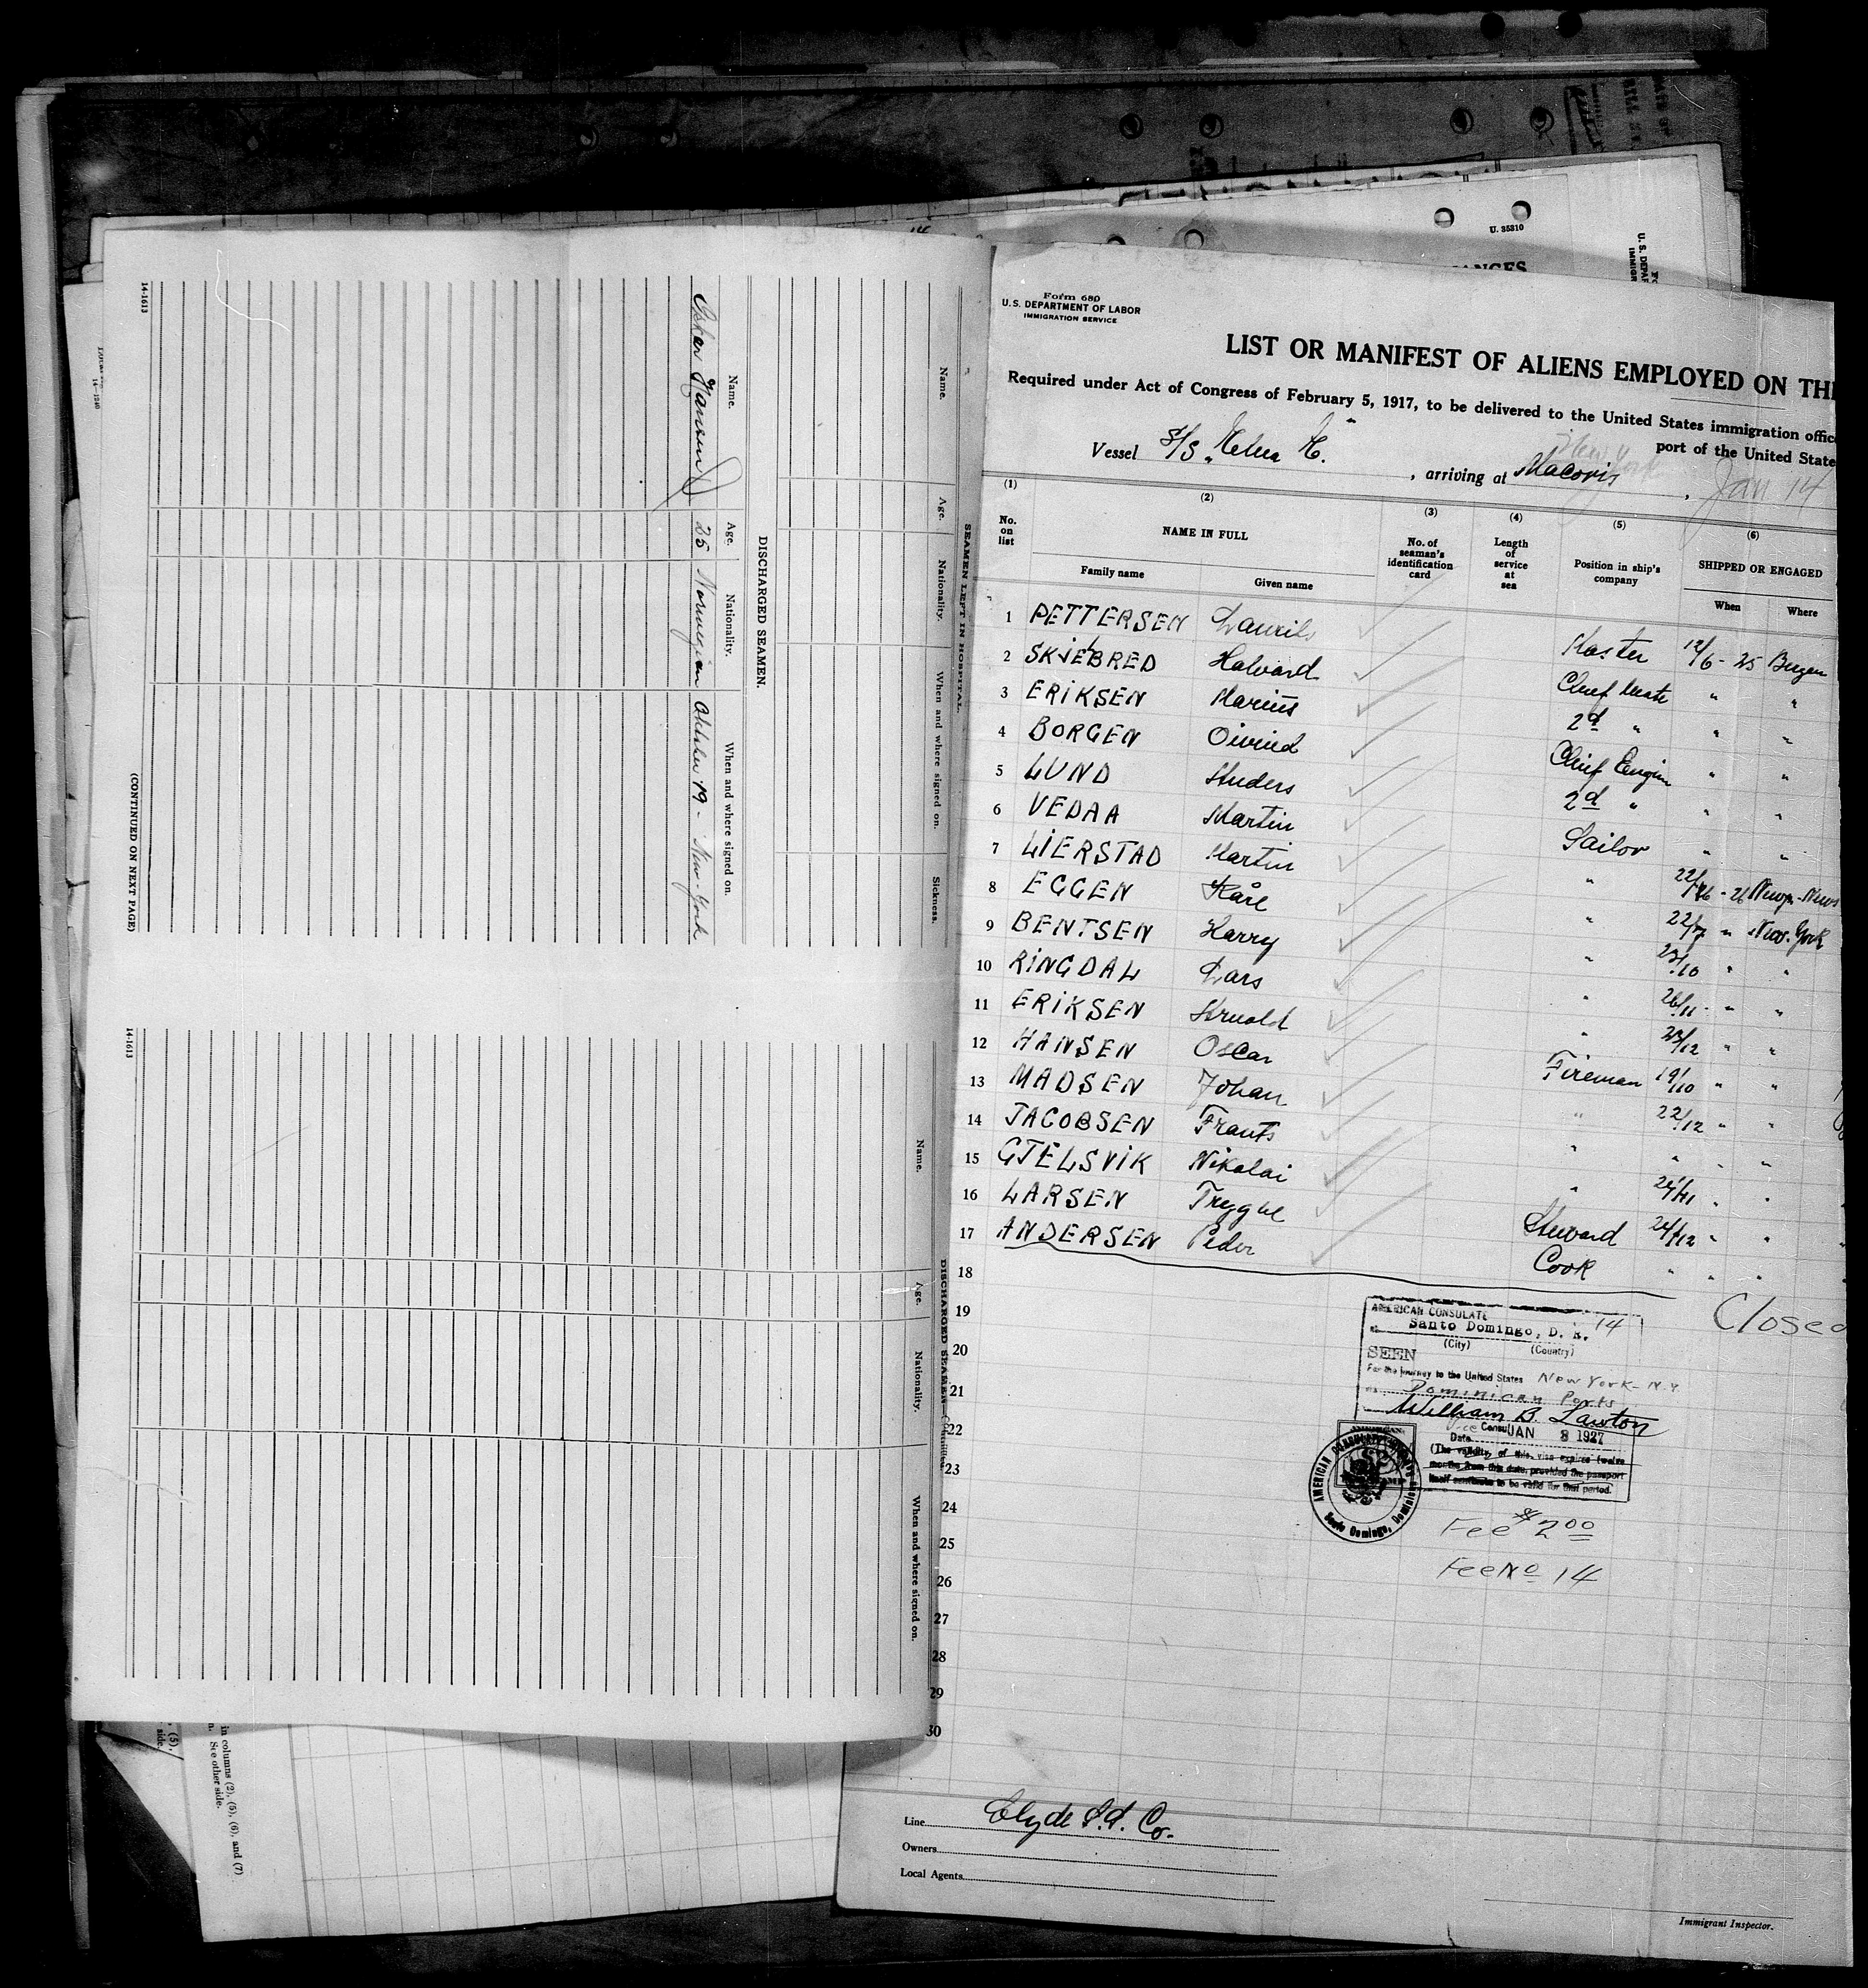 U. 35310
Form 680
U. S. DEPARTMENT OF LABOR
IMMIGRATION SERVICE
LIST OR MANIFEST OF ALIENS EMPLOYED ON TH
Required under Act of Congress of February 5, 1917, to be delivered to the United States immigration offic
port of the United State
Vessel S/S , arriving at Macoris New York, Jan 14
(1) (2) (3) (4) (5) (6)
No. on list NAME IN FULL No. of seaman's identification card Length of service at sea Position in ship's company SHIPPED OR ENGAGED
Family name Given name When Where
1 PETTERSEN Laurits Master 12/6 - 25 Bergen
2 SKJEBRED Halvard Chief Mate " "
3 ERIKSEN Marius 2d " " "
4 BORGEN Oivind Chief Engin " "
5 LUND Anders 2d " " "
6 VEDAA Martin Sailor " "
7 LIERSTAD Martin "
8 EGGEN Kåre "
9 BENTSEN Harry "
10 RINGDAL Lars "
11 ERIKSEN Arnold "
12 HANSEN Oscar Fireman 19/10 " "
13 MADSEN Johan " 22/12 " "
14 JACOBSEN Frants " " " "
15 GJELSVIK Nikolai "
16 LARSEN Trygve Steward 24/12 " "
17 ANDERSEN Peder Cook " " "
18
19
20
21
22
23
24
25
26
27
28
29
30
Closed
AMERICAN CONSULATE 14
at Santo Domingo, D. R.
(City) (Country)
SEEN
For the journey to the United States New York - N.Y.
Dominican Ports
William B. Lawton
Vice Consul
Date JAN 8 1927
(The validity of this visa expires twelve
months from this date, provided the passport
itself continues to be valid for that period.
AMERICAN CONSULATE
Santo Domingo, Dominican
Fee $2.00
Fee No 14
Line Clyde S.S. Co.
Owners
Local Agents
Immigrant Inspector.
SEAMEN LEFT IN HOSPITAL.
Name. Age. Nationality. When and where signed on. Sickness.
DISCHARGED SEAMEN.
Name. Age. Nationality. When and where signed on.
Oskar Hansen 25 Norwegian October 19 - New-York
14-1613
(CONTINUED ON NEXT PAGE)
DISCHARGED SEAMEN—Continued.
Name. Age. Nationality. When and where signed on.
14-1613
in columns (2), (5), (6), and (7)
See other side.